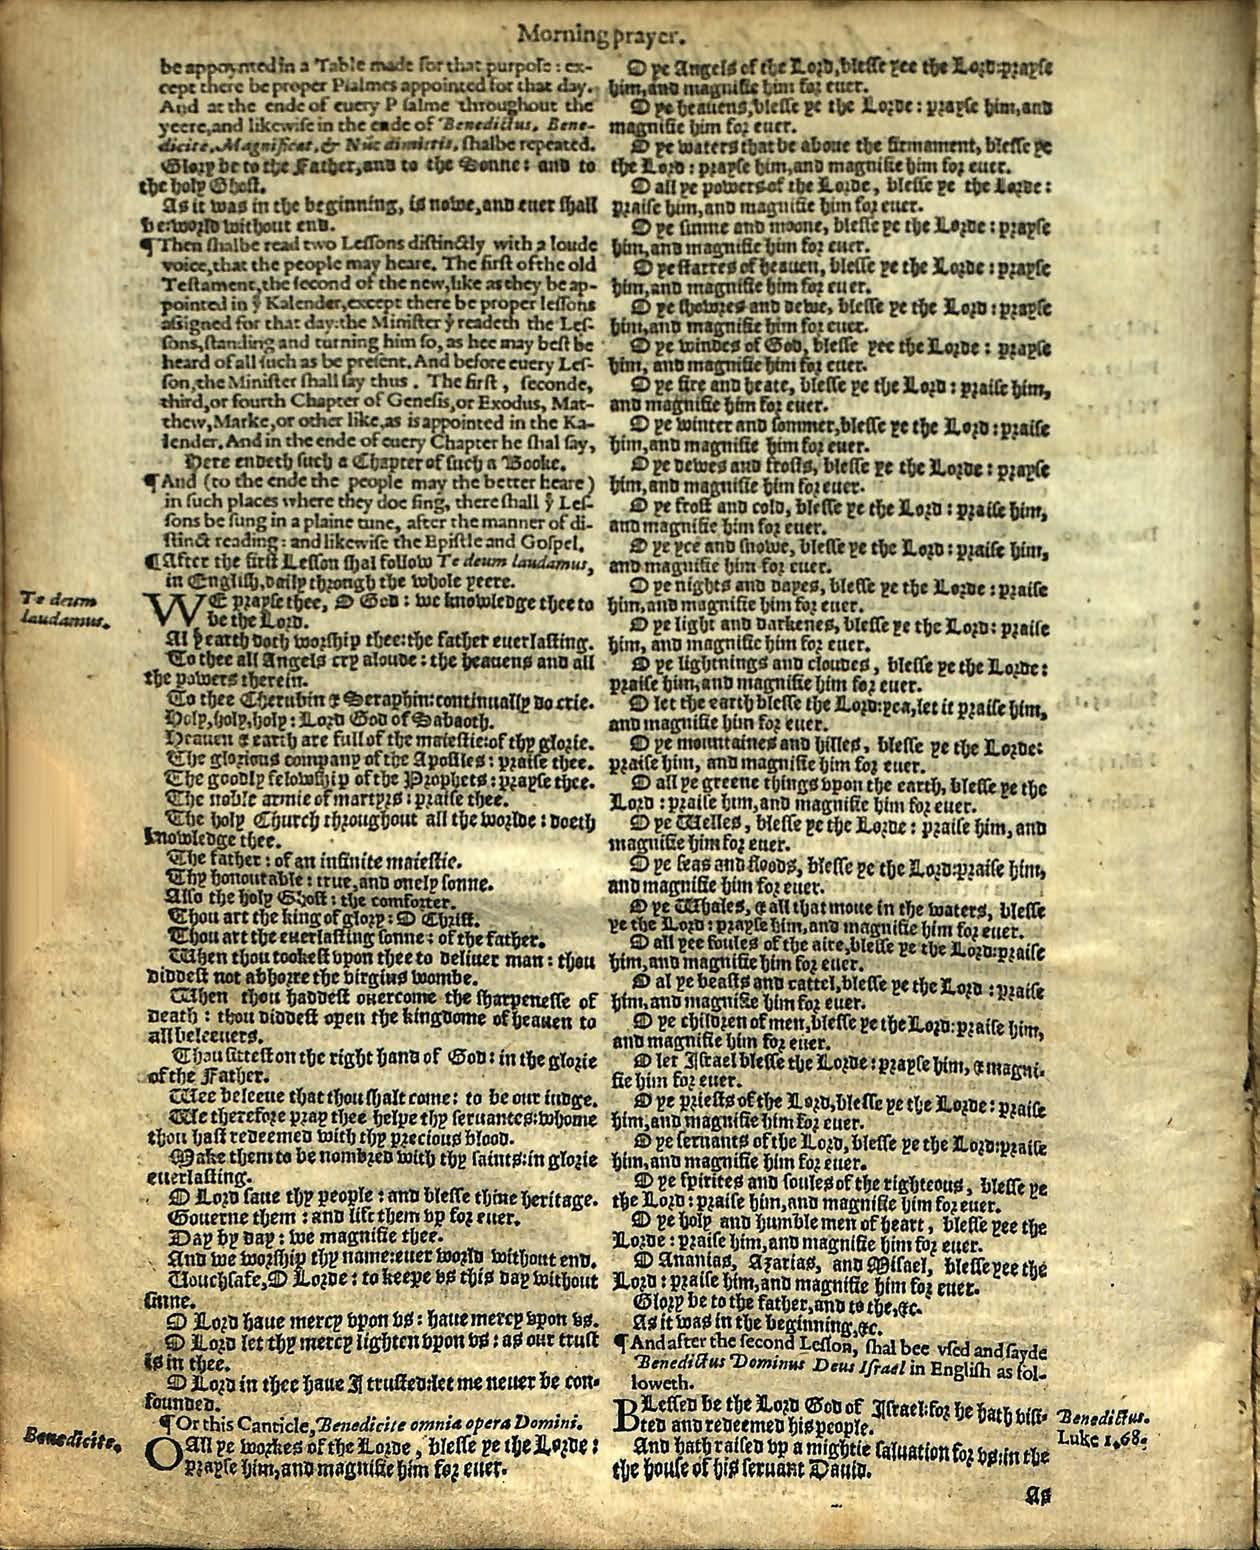 Morning prayer.
be appoynted in a Table made for that purpose: ex-
cept there be proper Psalmes appointed for that day.
And at the ende of euery Psalme throughout the
yeere, and likewise in the ende of Benedictus, Bene-
dicite, Magnificat, & Nūc dimittis, shalbe repeated.
Glory be to the Father, and to the Sonne: and to
the holy Ghost.
As it was in the beginning, is nowe, and euer shall
be: world without end.
¶ Then shalbe read two Lessons distinctly with a loude
voice, that the people may heare. The first of the old
Testament, the second of the new, like as they be ap-
pointed in yͤ Kalender, except there be proper lessons
assigned for that day: the Minister yͭ readeth the Les-
sons, standing and turning him so, as hee may best be
heard of all such as be present. And before euery Les-
son, the Minister shall say thus. The first, seconde,
third, or fourth Chapter of Genesis, or Exodus, Mat-
thew, Marke, or other like, as is appointed in the Ka-
lender. And in the ende of euery Chapter he shal say,
Here endeth such a Chapter of such a Booke.
¶ And (to the ende the people may the better heare)
in such places where they doe sing, there shall yͤ Les-
sons be sung in a plaine tune, after the manner of di-
stinct reading: and likewise the Epistle and Gospel.
¶ After the first Lesson shal follow Te deum laudamus,
in English, daily through the whole yeere.
Te deum
laudamus.
WE prayse thee, O God: we knowledge thee to
be the Lord.
Al yͤ earth doth worship thee: the father euerlasting.
To thee all Angels cry aloude: the heauens and all
the powers therein.
To thee Cherubin & Seraphin: continually do crie.
Holy, holy, holy: Lord God of Sabaoth.
Heauen & earth are full of the maiestie: of thy glorie.
The glorious company of the Apostles: praise thee.
The goodly felowship of the Prophets: prayse thee.
The noble armie of martyrs: praise thee.
The holy Church throughout all the worlde: doeth
knowledge thee.
The father: of an infinite maiestie.
Thy honourable: true, and onely sonne.
Also the holy Ghost: the comforter.
Thou art the king of glory: O Christ.
Thou art the euerlasting sonne: of the father.
When thou tookest vpon thee to deliuer man: thou
diddest not abhorre the virgins wombe.
When thou haddest ouercome the sharpenesse of
death: thou diddest open the kingdome of heauen to
all beleeuers.
Thou sittest on the right hand of God: in the glorie
of the Father.
Wee beleeue that thou shalt come: to be our iudge.
We therefore pray thee helpe thy seruantes: whome
thou hast redeemed with thy precious blood.
Make them to be nombred with thy saints: in glorie
euerlasting.
O Lord saue thy people: and blesse thine heritage.
Gouerne them: and lift them vp for euer.
Day by day: we magnifie thee.
And we worship thy name: euer world without end.
Vouchsafe, O Lorde: to keepe vs this day without
sinne.
O Lord haue mercy vpon vs: haue mercy vpon vs.
O Lord let thy mercy lighten vpon vs: as our trust
is in thee.
O Lord in thee haue I trusted: let me neuer be con-
founded.
¶ Or this Canticle, Benedicite omnia opera Domini.
Benedicite.
O All ye workes of the Lorde, blesse ye the Lorde:
prayse him, and magnifie him for euer.
O ye Angels of the Lord, blesse yee the Lord: prayse
him, and magnifie him for euer.
O ye heauens, blesse ye the Lorde: prayse him, and
magnifie him for euer.
O ye waters that be aboue the firmament, blesse ye
the Lord: prayse him, and magnifie him for euer.
O all ye powers of the Lorde, blesse ye the Lorde:
praise him, and magnifie him for euer.
O ye sunne and moone, blesse ye the Lorde: prayse
him, and magnifie him for euer.
O ye starres of heauen, blesse ye the Lorde: prayse
him, and magnifie him for euer.
O ye showres and dewe, blesse ye the Lorde: prayse
him, and magnifie him for euer.
O ye windes of God, blesse yee the Lorde: prayse
him, and magnifie him for euer.
O ye fire and heate, blesse ye the Lord: praise him,
and magnifie him for euer.
O ye winter and sommer, blesse ye the Lord: praise
him, and magnifie him for euer.
O ye dewes and frosts, blesse ye the Lorde: prayse
him, and magnifie him for euer.
O ye frost and cold, blesse ye the Lord: praise him,
and magnifie him for euer.
O ye yce and snowe, blesse ye the Lord: praise him,
and magnifie him for euer.
O ye nights and dayes, blesse ye the Lord: praise
him, and magnifie him for euer.
O ye light and darkenes, blesse ye the Lord: praise
him, and magnifie him for euer.
O ye lightnings and cloudes, blesse ye the Lorde:
praise him, and magnifie him for euer.
O let the earth blesse the Lord: yea, let it praise him,
and magnifie him for euer.
O ye mountaines and hilles, blesse ye the Lorde:
praise him, and magnifie him for euer.
O all ye greene things vpon the earth, blesse ye the
Lord: praise him, and magnifie him for euer.
O ye Welles, blesse ye the Lorde: praise him, and
magnifie him for euer.
O ye seas and floods, blesse ye the Lord: praise him,
and magnifie him for euer.
O ye Whales, & all that moue in the waters, blesse
ye the Lord: prayse him, and magnifie him for euer.
O all yee foules of the aire, blesse ye the Lord: praise
him, and magnifie him for euer.
O al ye beasts and cattel, blesse ye the Lord: praise
him, and magnifie him for euer.
O ye children of men, blesse ye the Lord: praise him,
and magnifie him for euer.
O let Israel blesse the Lorde: prayse him, & magni-
fie him for euer.
O ye priests of the Lord, blesse ye the Lorde: praise
him, and magnifie him for euer.
O ye seruants of the Lord, blesse ye the Lord: praise
him, and magnifie him for euer.
O ye spirites and soules of the righteous, blesse ye
the Lord: praise him, and magnifie him for euer.
O ye holy and humble men of heart, blesse yee the
Lorde: praise him, and magnifie him for euer.
O Ananias, Azarias, and Misael, blesse yee the
Lord: praise him, and magnifie him for euer.
Glory be to the father, and to the, &c.
As it was in the beginning, &c.
¶ And after the second Lesson, shal bee vsed and sayde
Benedictus Dominus Deus Israel in English as fol-
loweth.
BLessed be the Lord God of Israel: for he hath visi-
ted and redeemed his people.
Benedictus.
Luke 1.68.
And hath raised vp a mightie saluation for vs: in the
the house of his seruant Dauid.
As